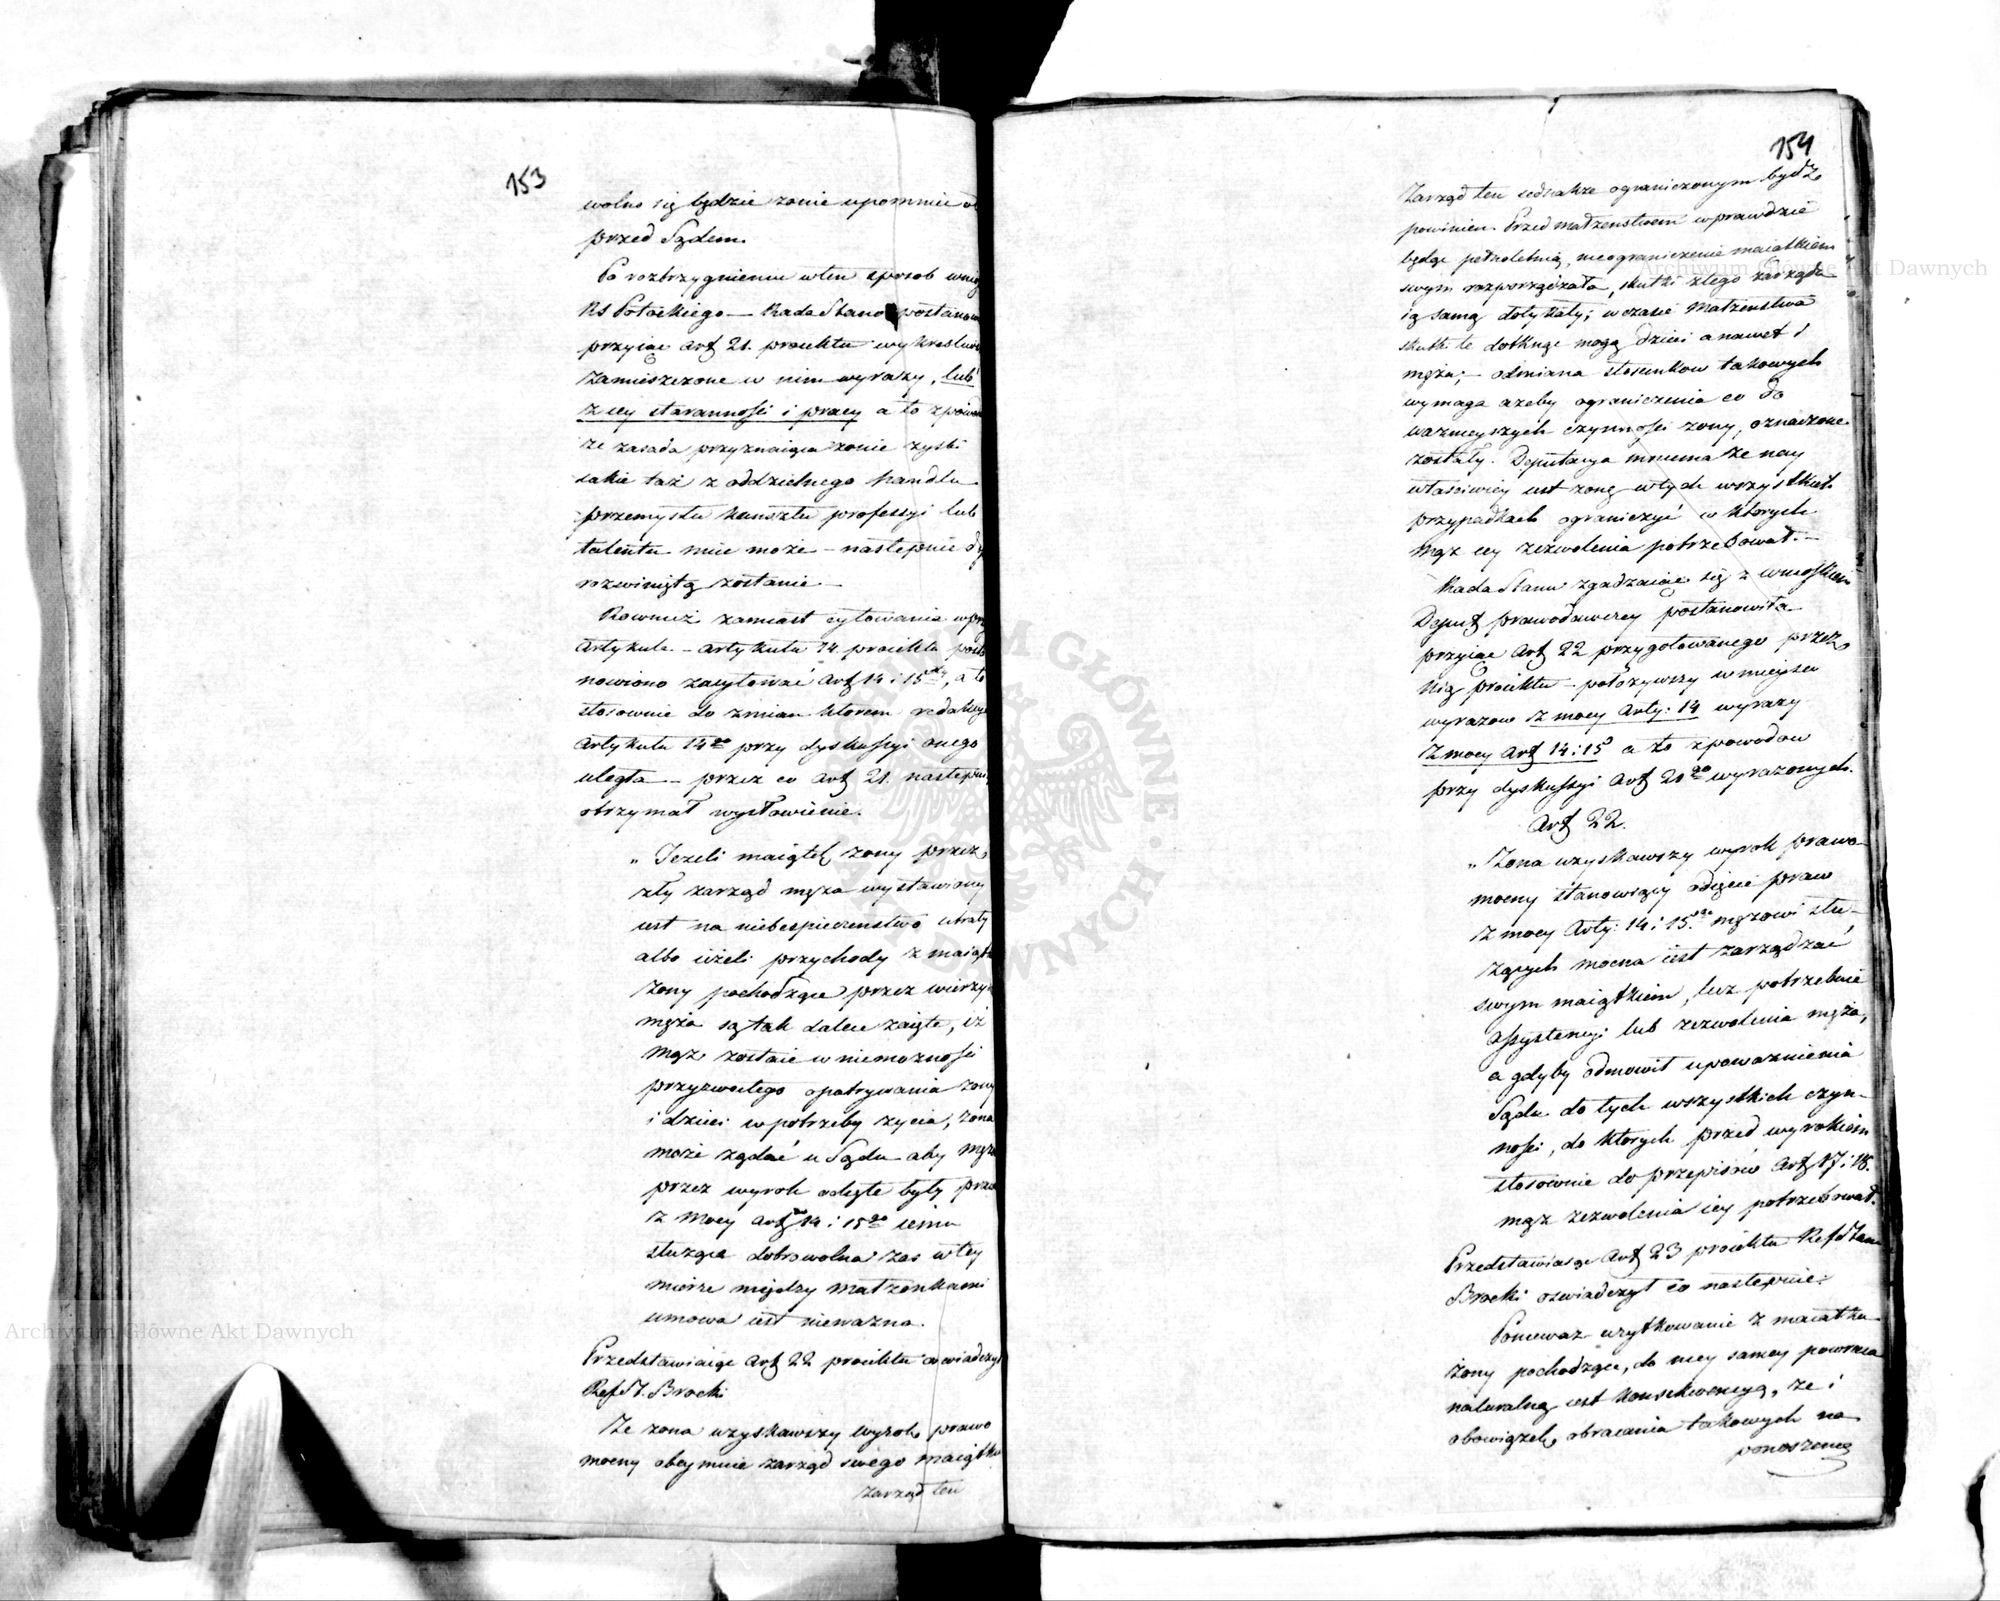 153
wolno się będzie żonie upomnieć
przed Sądem.
Po roztrzygnieniu w ten sposob
RS Potockiego — Rada Stanu
przyiąć Art 21. proiektu
zamieszczone w nim wyrazy, lub
z iey staranności i pracy a to
że zasada przyznaiąca żonie zyski
iakie taż z oddzielnego handlu
przemysłu kunsztu professyi lub
talentu mieć może — następnie
rozwiniętą zostanie —
Rownież zamiast cytowania
Artykule — Artykułu 14. proiektu
nowiono zacytować Art 14 i 15, a to
stosownie do zmian ktorem redakcya
Artykułu 14go przy dyskussyi onego
uległa — przez co Art 21.
otrzymał wysłowienie.
„ Jeżeli maiątek żony przez
zły zarząd męża wystawiony
iest na niebespieczenstwo utraty
albo ieżeli przychody z
żony pochodzące przez
męża są tak dalece zaięte, iż
mąż zostaie w niemożności
przyzwoitego opatrywania żony
i dzieci w potrzeby życia, żona
może żądać u Sądu aby
przez wyrok odięte były
z mocy Art 14 i 15go iemu
służące dobrowolna zaś w tey
mierze między małżonkami
umowa iest nieważna.
Przedstawiaiąc Art 22 proiektu
Ref St. Brocki
Że żona uzyskawszy wyrok prawo
mocny obeymuie zarząd swego maiątku
zarząd ten
154
Zarząd ten iednakże ograniczonym bydź
powinien. Przed małżenstwem wprawdzie
będąc pełnoletnią, nieograniczenie maiątkiem
swym rozporządzała, skutki złego zarządu
ią samą dotykały; w czasie małżenstwa
skutki te dotknąć mogą dzieci a nawet i
męża; — odmiana stosunkow takowych
wymaga ażeby ograniczenia co do
ważnieyszych czynności żony, oznaczone
zostały. Deputacya mniema że nay
właściwiey iest żonę w tych wszystkich
przypadkach ograniczyć w ktorych
mąż iey zezwolenia potrzebował. —
Rada Stanu zgadzaiąc się z wnioskiem
Deput prawodawczey postanowiła
przyiąć Art 22 przygotowanego przez
nią proiektu — położywszy w mieysce
wyrazow z mocy Arty: 14 wyrazy
z mocy Art 14 i 15 a to z powodow
przy dyskussyi Art 21go wyrażonych.
Art 22.
„ Żona uzyskawszy wyrok prawo
mocny stanowiący odięcie praw
z mocy Arty: 14 i 15go mężowi słu-
żących mocna iest zarządzać
swym maiątkiem, lecz potrzebuie
assystencyi lub zezwolenia męża,
a gdyby odmowił upoważnienia
Sądu do tych wszystkich czyn-
ności, do ktorych przed wyrokiem
stosownie do przepisow Art 17 i 18.
mąż zezwolenia iey potrzebował.
Przedstawiaiąc Art 23 proiektu Ref Stanu
Brocki oświadczył co następuie:
Ponieważ użytkowanie z maiątku
żony pochodzące, do niey samey powraca
naturalną iest konsekwencyą, że i
obowiązek obracania takowych na
ponoszenie